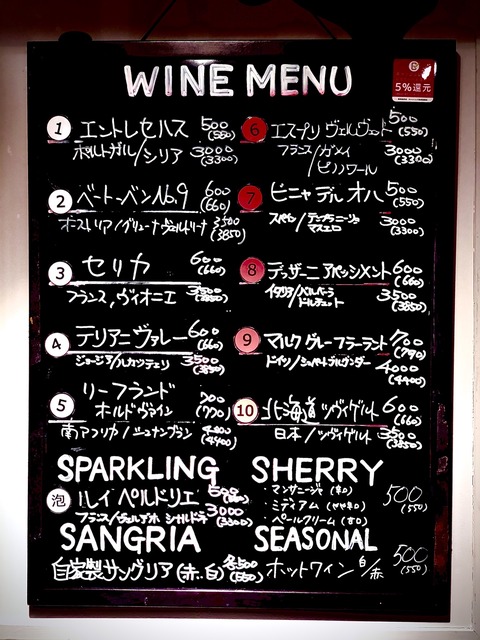 WINE MENU
5%還元
1 エントレセルハス 500 (550)
ポルトガル/シリア 3000 (3300)
2 ベートーベンNo.9 600 (660)
オーストリア/グリューナ ヴェルトリーナ 3500 (3850)
3 セリカ 600 (660)
フランス,ヴィオニエ 3500 (3850)
4 テリアニ ヴァレー 600 (660)
ジョージア/ルカツテリ 3500 (3850)
5 リーフランド
オールドヴァイン 700 (770)
南アフリカ/シュナンブラン 4000 (4400)
6 エスプリ ヴェルヴェット 500 (550)
フランス/ガメイ 3000 (3300)
ピノノワール
7 ピニャ デル オハ 500 (550)
スペイン/テンプラニージョ 3000 (3300)
マスエロ
8 デッザーニ アパッシメント 600 (660)
イタリア/バルベーラ 3500 (3850)
ドルチェット
9 マルク グレーフラーラント 700 (770)
ドイツ/シュペートブルグンダー 4000 (4400)
10 北海道 ツヴァイゲルト 600 (660)
日本/ツヴァイゲルト 3500 (3850)
SPARKLING
泡 ルイ ペルドリエ 500 (550)
フランス/ シャルドネ 3000 (3300)
SANGRIA
自家製サングリア(赤.白) 各500 (550)
SHERRY
・マンサニージャ(辛口)
・ミディアム(やや辛口) 500 (550)
・ペールクリーム(甘口)
SEASONAL
ホットワイン 白/赤 500 (550)